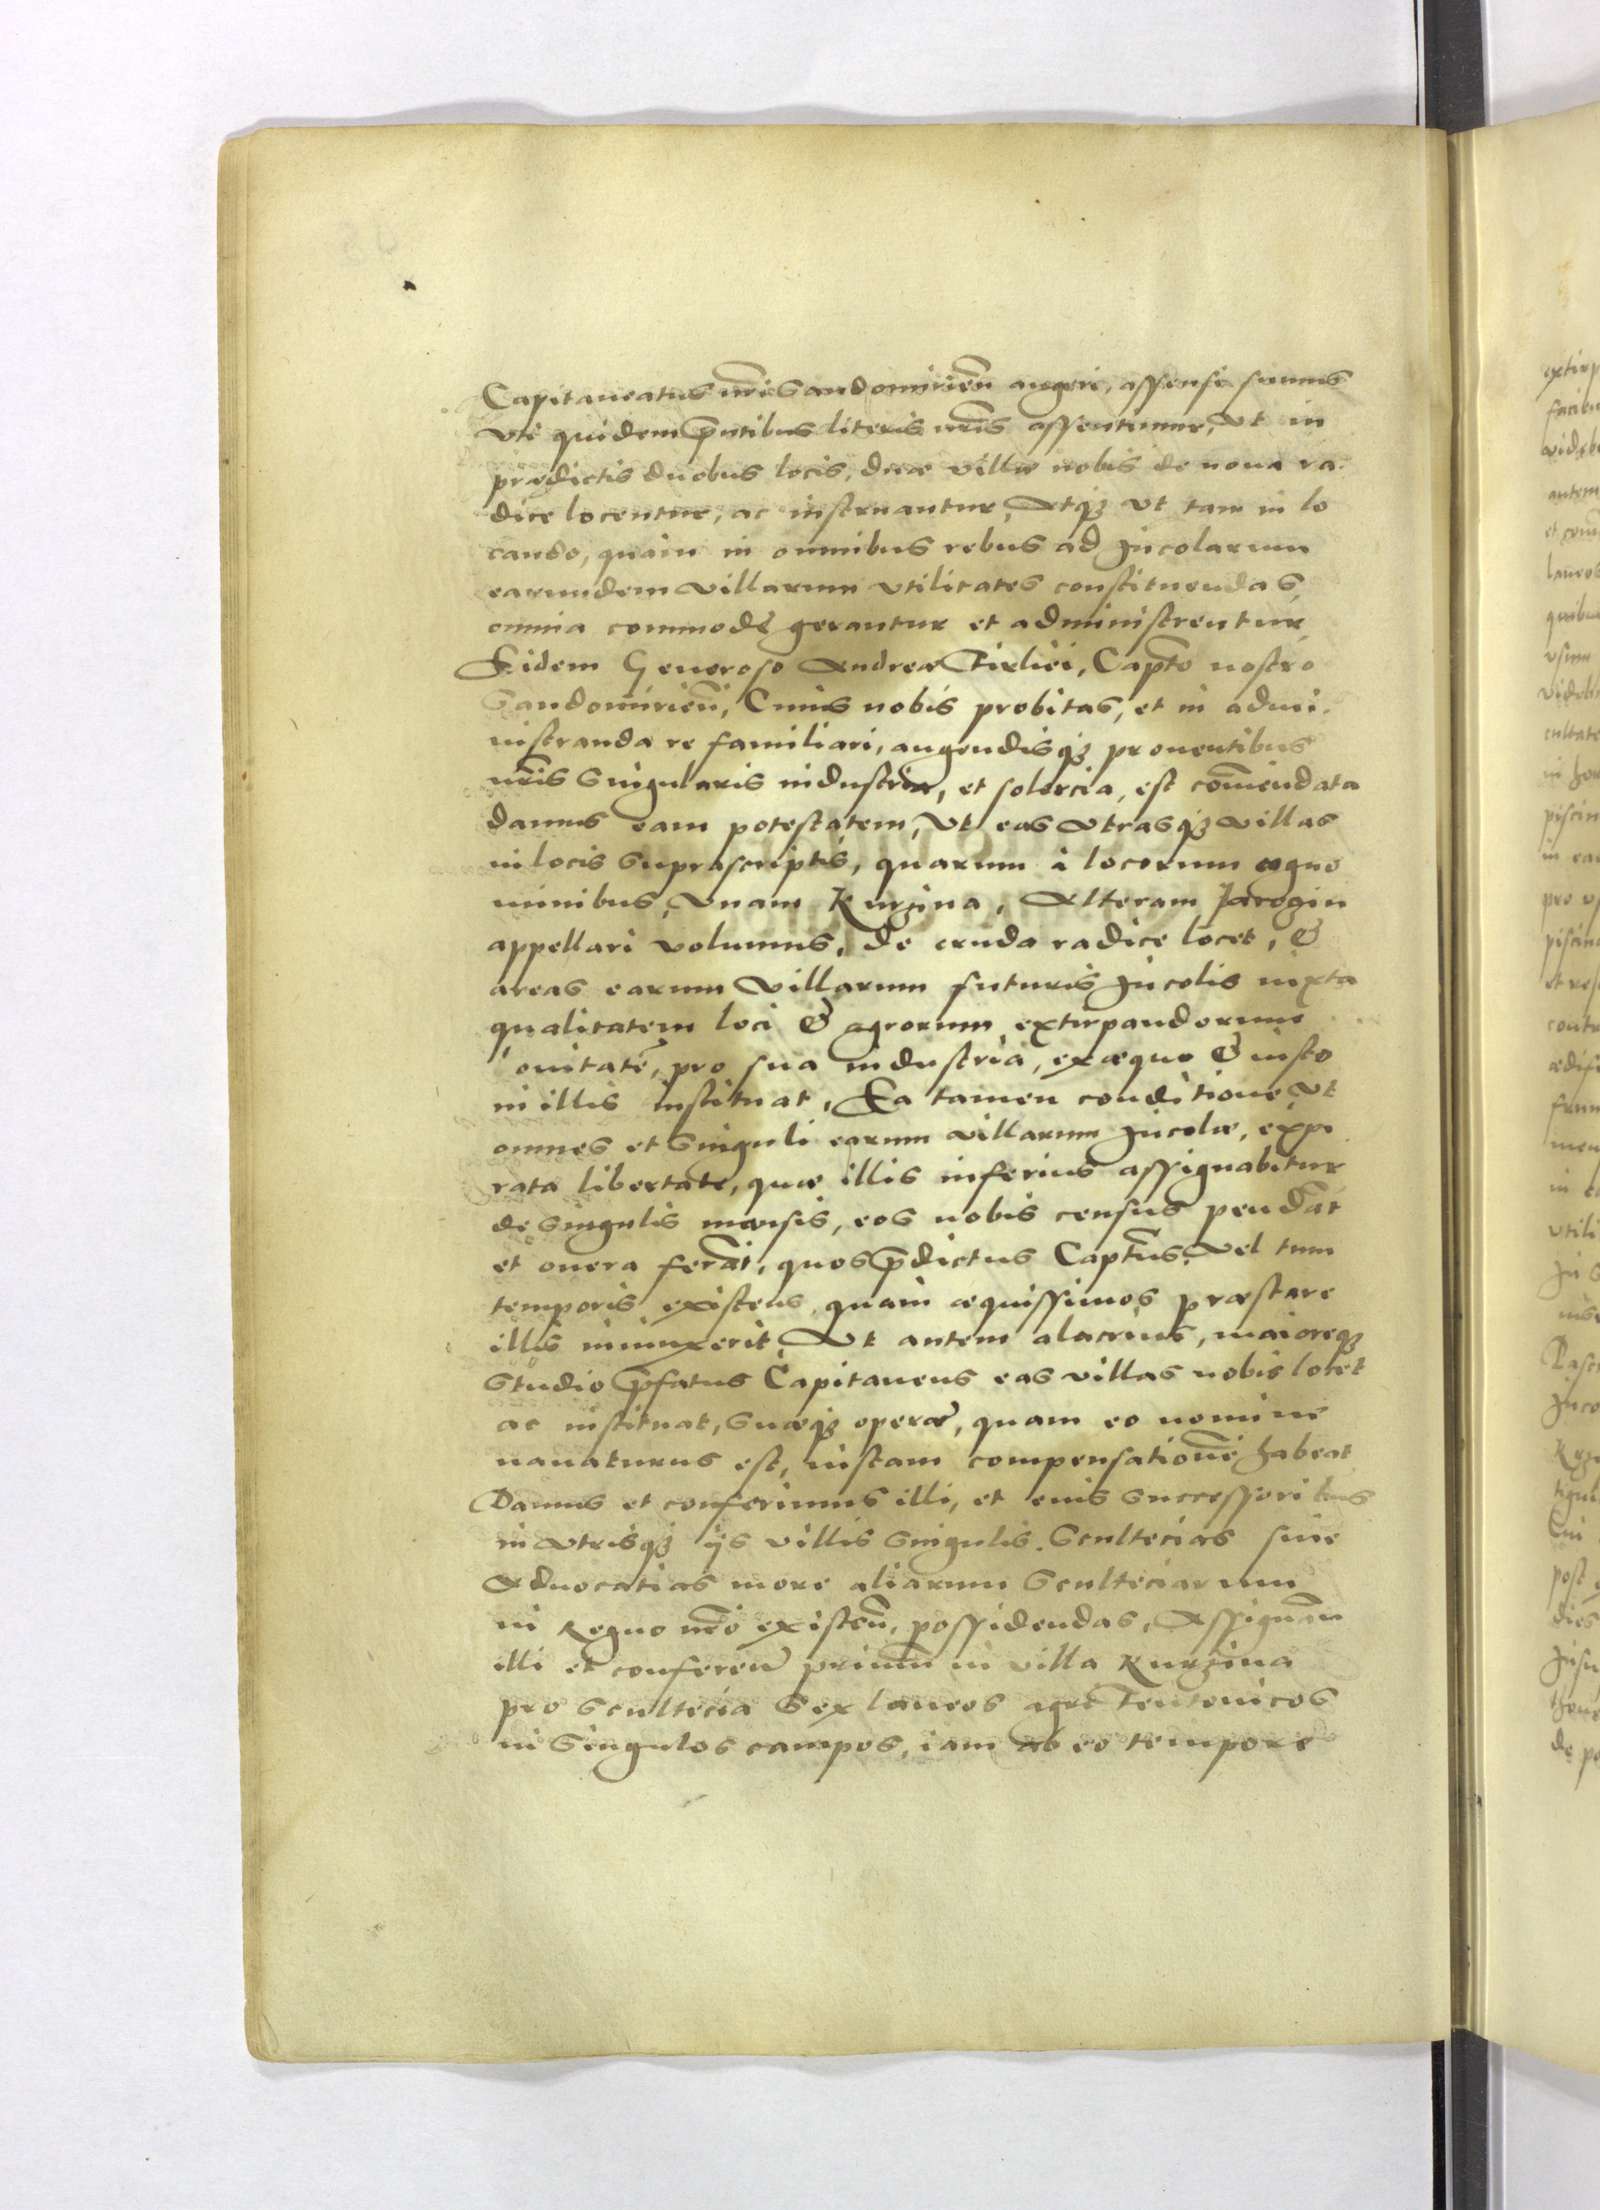 Capitaneatus nr̄i Sandomirien̄ augeri, assensi sumus
Vti quidem pn̄tibus literis nr̄is assentimur, Vt in
prædictis duobus locis, duæ villæ nobis de noua ra
dice locentur, ac instruantur, Atq3 Vt tam in lo
cando, quam in omnibus rebus ad Jncolarum
earumdem Villarum Vtilitates constituendas
omnia commodè gerantur et administrentur,
Eidem Generoso Andreæ Firliei, Capt̄o nostro
Sandomirien̄, Cuius nobis probitas, et in admi
nistranda re familiari, augendisq3 prouentibus
nr̄is singularis industria, et solercia, est com̄endata
damus eam potestatem, Vt eas Vtrasq3 villas
in locis suprascriptis, quarum à locorum cogno
minibus, Vnam Kurzina, Alteram Jarogin
appellari volumus, de cruda radice locet, &
areas earum Villarum futuris Jncolis iuxta
qualitatem loci & agrorum extirpandorum
onitatē, pro sua industria, ex æquo & iusto
in illis instituat, Ea tamen conditione, Vt
omnes et singuli earum villarum Jncolæ, expi
rata libertate, quæ illis inferius assignabitur
de singulis mansis, eos nobis census pendāt
et onera ferāt, quos p̄dictus Capt̄us, Vel tum
temporis existens, quam æquissimos præstare
illis iniunxerit, Vt autem alacrius, maioreq3
studio p̄fatus Capitaneus eas villas nobis locet
ac instituat, suæq3 operæ, quam eo nomine
nauaturus est, iustam compensationē habeat
Damus et conferimus illi, et eius successoribus
in Vtrisq3 ijs villis singulis. Scultecias siue
Aduocatias more aliarum Scultetiarum
in Regno nr̄o existen̄, possidendas, Assignan̄
illi et conferen̄ primum in villa Kurzina
pro Scultecia Sex laneos agri Teutonicos
in Singulos campos, iam ab eo tempore